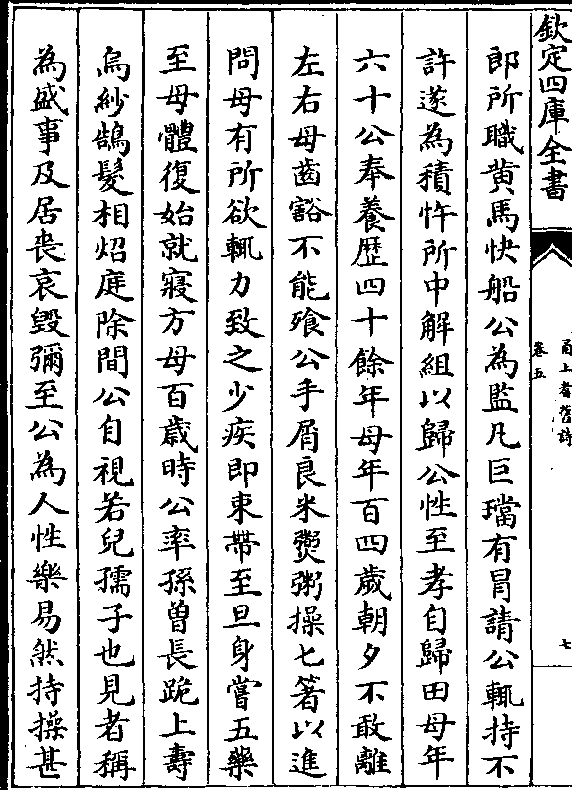 欽定四庫全書
甬上耆舊詩
卷五
七
郎所職黄馬快船公為監凡巨璫有冐請公輒持不
許遂為積忤所中解組以歸公性至孝自歸田母年
六十公奉養歴四十餘年母年百四歲朝夕不敢離
左右母齒豁不能飱公手屑良米爕粥操匕箸以進
問母有所欲輒力致之少疾即束帶至旦身嘗五藥
至母體復始就寢方母百歲時公率孫曽長跪上壽
烏紗鵠髮相炤庭除間公自視若兒孺子也見者稱
為盛事及居喪哀毀彌至公為人性樂易然持操甚